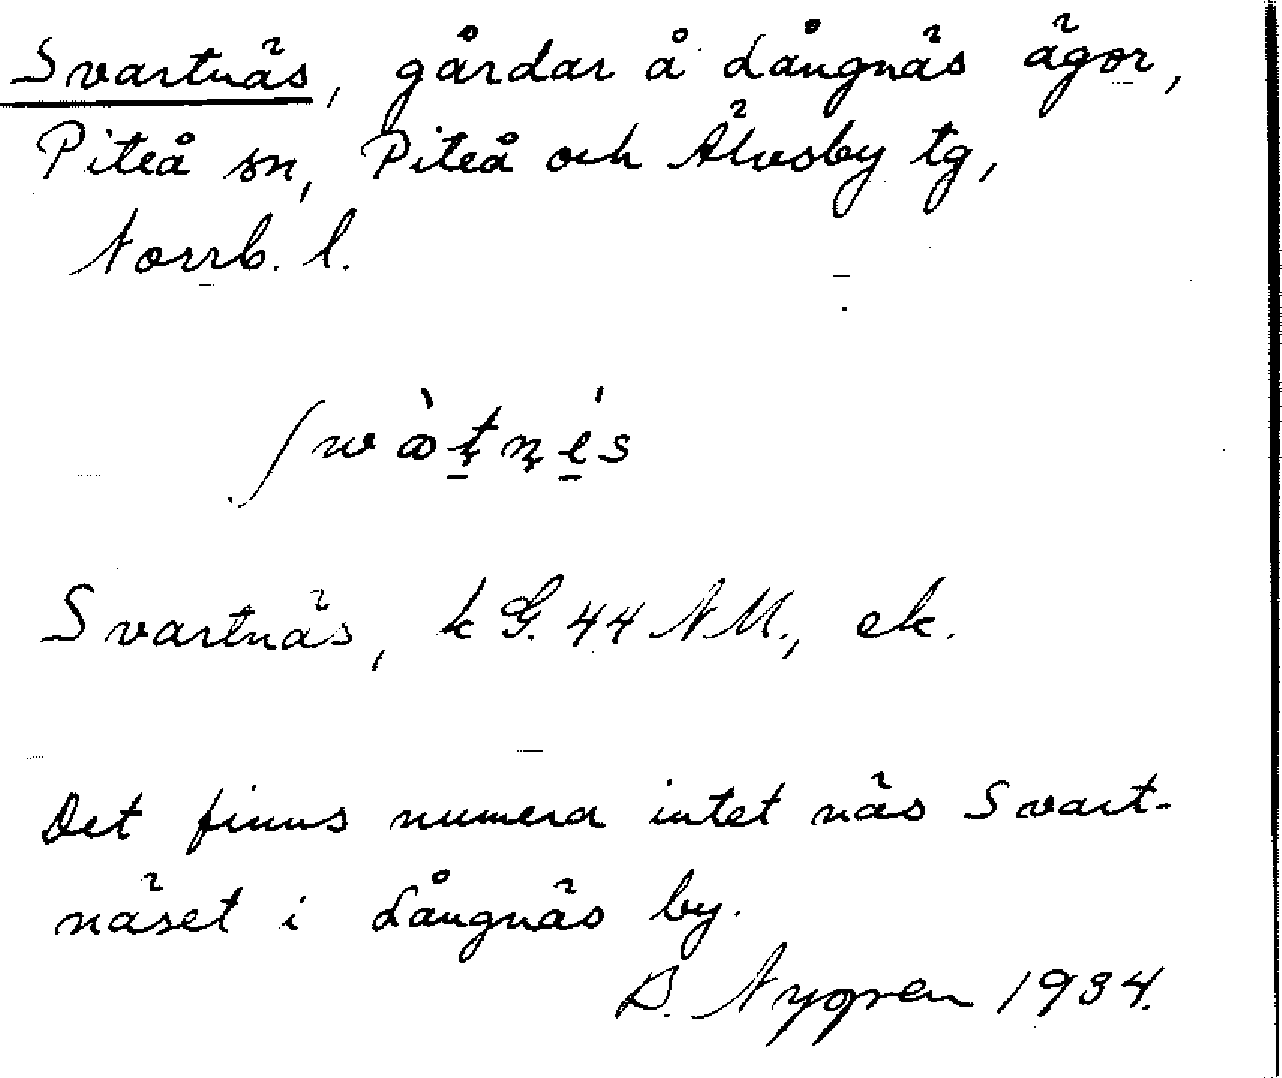 Svartnäs, gårdar å Långnäs ägor,
Piteå sn, Piteå och Älvsby tg,
Norrb. l.
Svartnäs, k G. 44 NM., ek.
Det finns numera intet näs Svart-
näset i Långnäs by.
B. Nygren 1934.